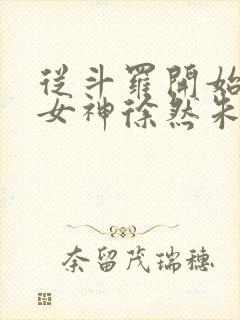 從斗羅開始
女神徐然朱
奈留茂瑞穗